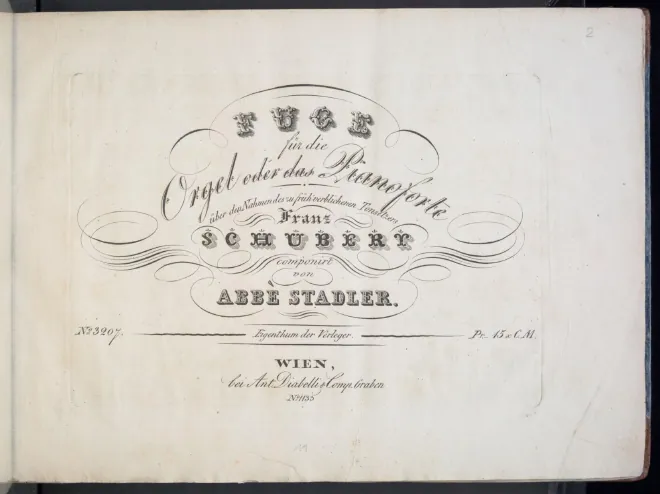 2
FUGE
für die
Orgel oder das Pianoforte
über den Nahmen des zu früh verblichenen Tonsetzers
Franz
SCHUBERT
componirt
von
ABBÈ STADLER.
No. 3207. Eigenthum der Verleger. Pr. 45 x C.M.
WIEN,
bei Ant. Diabelli & Comp. Graben
No. 1133